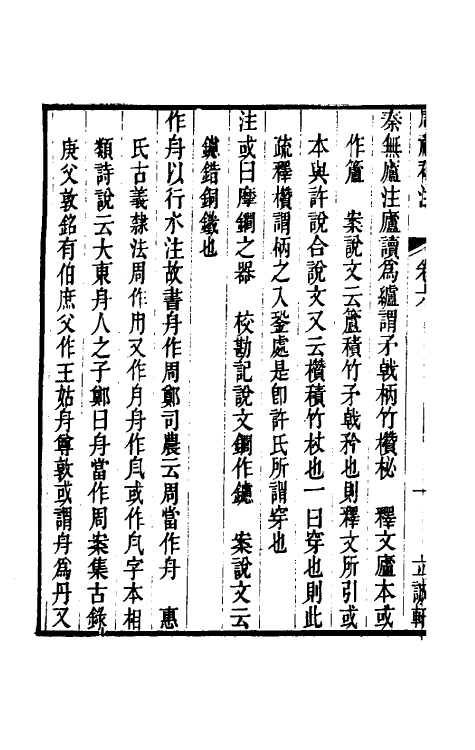 秦無廬注廬讀爲纑謂矛戟柄竹欑柲　釋文廬本或
作籚　案說文云籚積竹矛戟矜也則釋文所引或
本與許說合說文又云欑積竹杖也一曰穿也則此
疏釋欑謂柄之入銎處是卽許氏所謂穿也
注或曰摩鐧之器　校勘記說文鐧作鐧　案說文云
鐧錯銅鐵也
作舟以行水注故書舟作周鄭司農云周當作舟　惠
氏古義隸法周作用又作月舟作凡或作凡字本相
類詩說云大東舟人之子鄭曰舟當作周案集古錄
庚父敦銘有伯庶父作王姑舟尊敦或謂舟爲丹又
卷六